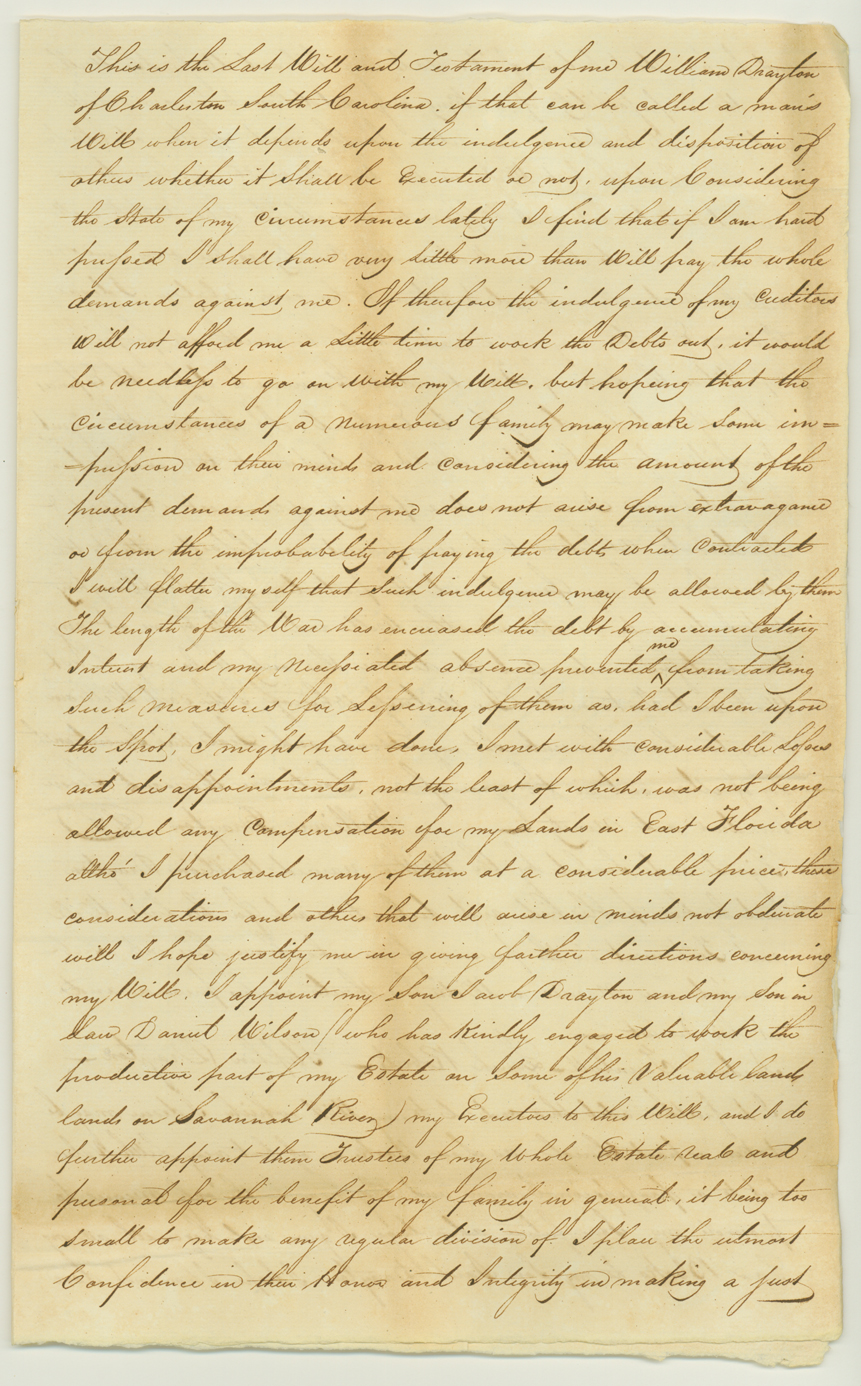 This is the Last Will and Testament of me William Drayton
of Charleston South Carolina. if that can be called a man's
Will when it depends upon the indulgence and disposition of
others whether it Shall be Executed or not, upon Considering
the State of my Circumstances lately I find that if I am hard
pressed I shall have very little more than Will pay the whole
demands against me. If therefore the indulgence of my Creditors
Will not afford me a Little time to work the Debts out, it would
be needless to go on with my Will, but hopeing that the
Circumstances of a Numerous family may make Some im=
=pression on their minds and considering the amount of the
present demands against me does not arise from extravagance
or from the improbability of paying the debts when Contracted
I will flatter myself that Such indulgence may be allowed by them
The length of the War has encreased the debt by accumulating
me
Interest and my necessiated absence prevented ^ from taking
Such measures for Lessening of them as, had I been upon
the Spot, I might have done, I met with considerable Losses
and disappointments, not the least of which, was not being
allowed any Compensation for my Lands in East Florida
altho' I purchased many of them at a considerable price, these
considerations and others that will arise in minds not obdurate
will I hope justify me in giving farther directions concerning
my Will. I appoint my Son Jacob Drayton and my Son in
Law Daniel Wilson (who has kindly engaged to work the
productive part of my Estate on Some of his Valuable lands
lands on Savannah River) my Executors to this Will, and I do
further appoint them Trustees of my Whole Estate real and
personal for the benefit of my family in general, it being too
small to make any regular division of. I place the utmost
Confidence in their Honor and Integrity in making a just